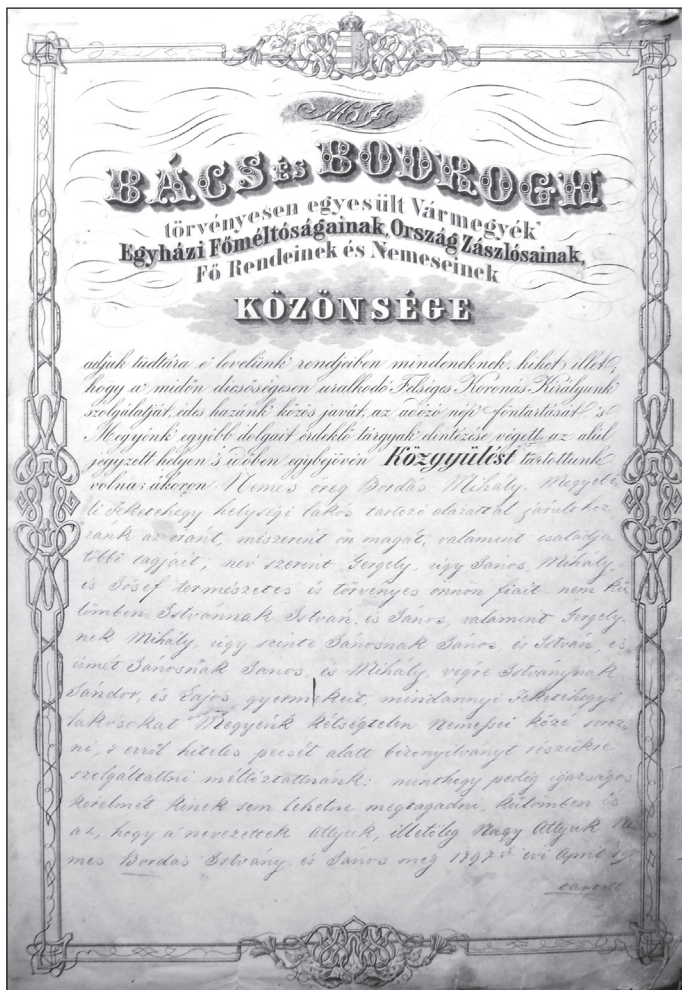 Mi
BÁCS ÉS BODROGH
törvényesen egyesült Vármegyék'
Egyházi Főméltóságainak, Ország Zászlósainak,
Fő Rendeinek és Nemeseinek
KÖZÖNSÉGE
adjuk tudtára e' levelünk' rendjében mindeneknek, kiket illet,
hogy a' midőn dicsőségesen uralkodó Felséges Koronás Királyunk'
szolgálatját, édes hazánk' közös javát, az adózó nép' föntartását 's
Megyénk' egyébb dolgait érdeklő tárgyak' elintézése végett az alúl
jegyzett helyen 's időben egybejövén Közgyülést tartottunk
volna; akoron Nemes öreg Bordás Mihály. Megyebé-
li Feketehegy helységi lakos tartozó alázattal járult hoz-
zánk az eránt, miszerent ön magát, valamint családja
többi tagjait, név szerent Gergely, úgy János, Mihály
és Jósef természetes és törvényes önnön fiait, nem kü-
lömben Istvánnak István, és János, valamint Gergely-
nek Mihály, úgy szinte Jánosnak János és István, és
ismét Jánosnak János, és Mihály, végre Istványnak
Sándor, és Lajos gyermekeit, mindannyi Feketehegyi
lakosokat Megyénk kétségtelen Nemessei közé soroz-
ni, s erről hiteles pecsét alatt bizonyítványt részükre
szolgáltatni méltóztatnánk: minthogy pedig igazságos
kérelmét kinek sem lehetne megtagadni, külömben is
az, hogy a' nevezettek Attyuk, illetőleg Nagy Attyuk Ne-
mes Bordás Istvány és János még 1797 évi April